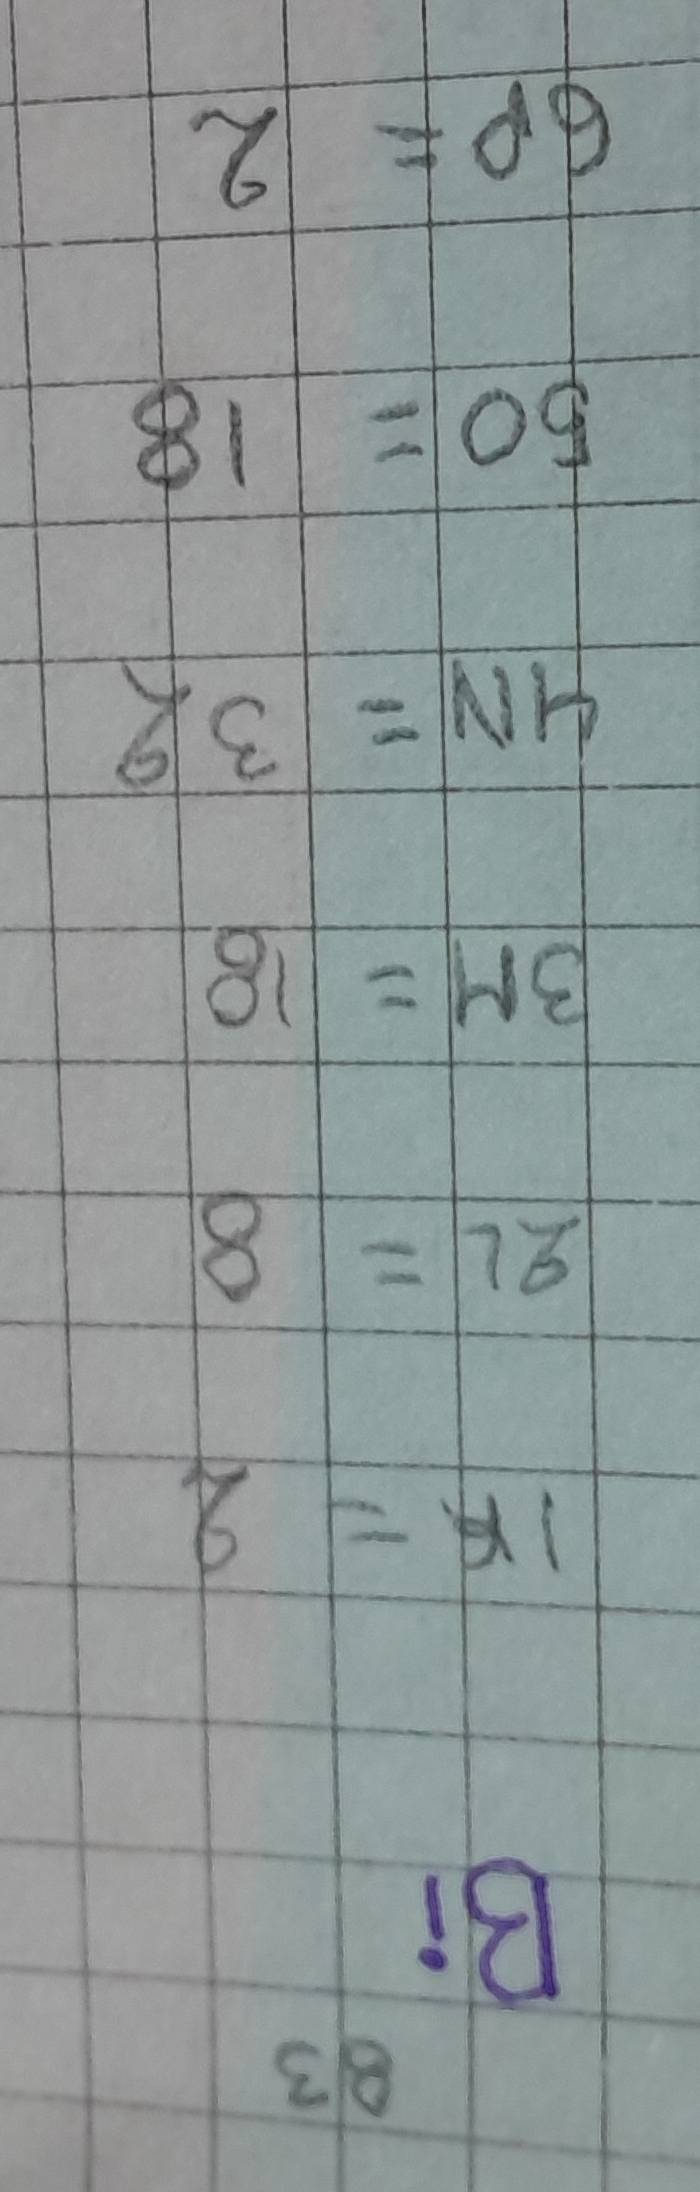 83
Bi
1K = 2
2L = 8
3M = 18
4N = 32
5O = 18
6P = 2